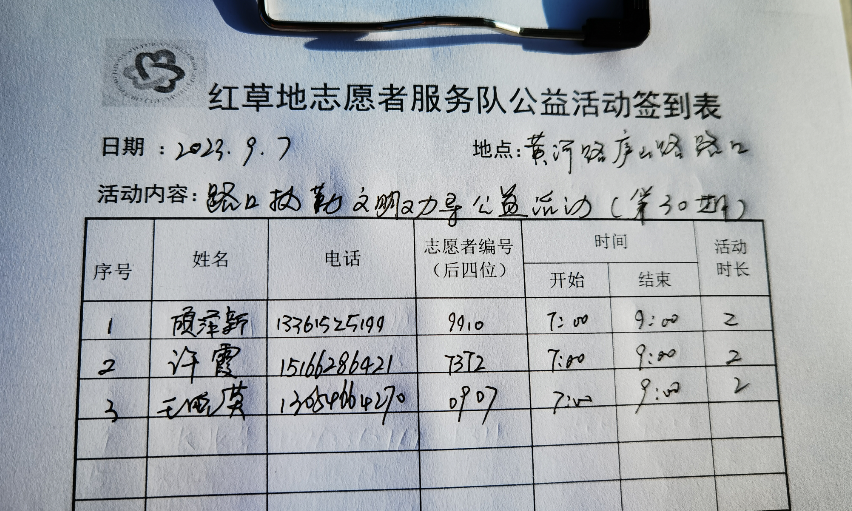 红草地志愿者服务队公益活动签到表
日期：2023.9.7 地点：黄河路庐山路路口
活动内容：路口执勤文明劝导公益活动（第30期）
序号 姓名 电话 志愿者编号（后四位） 时间 开始 结束 活动时长
1 顾泽新 13361525199 9910 7:00 9:00 2
2 许霞 15166286421 7372 7:00 9:00 2
3 王晓英 13054664270 0907 7:00 9:00 2